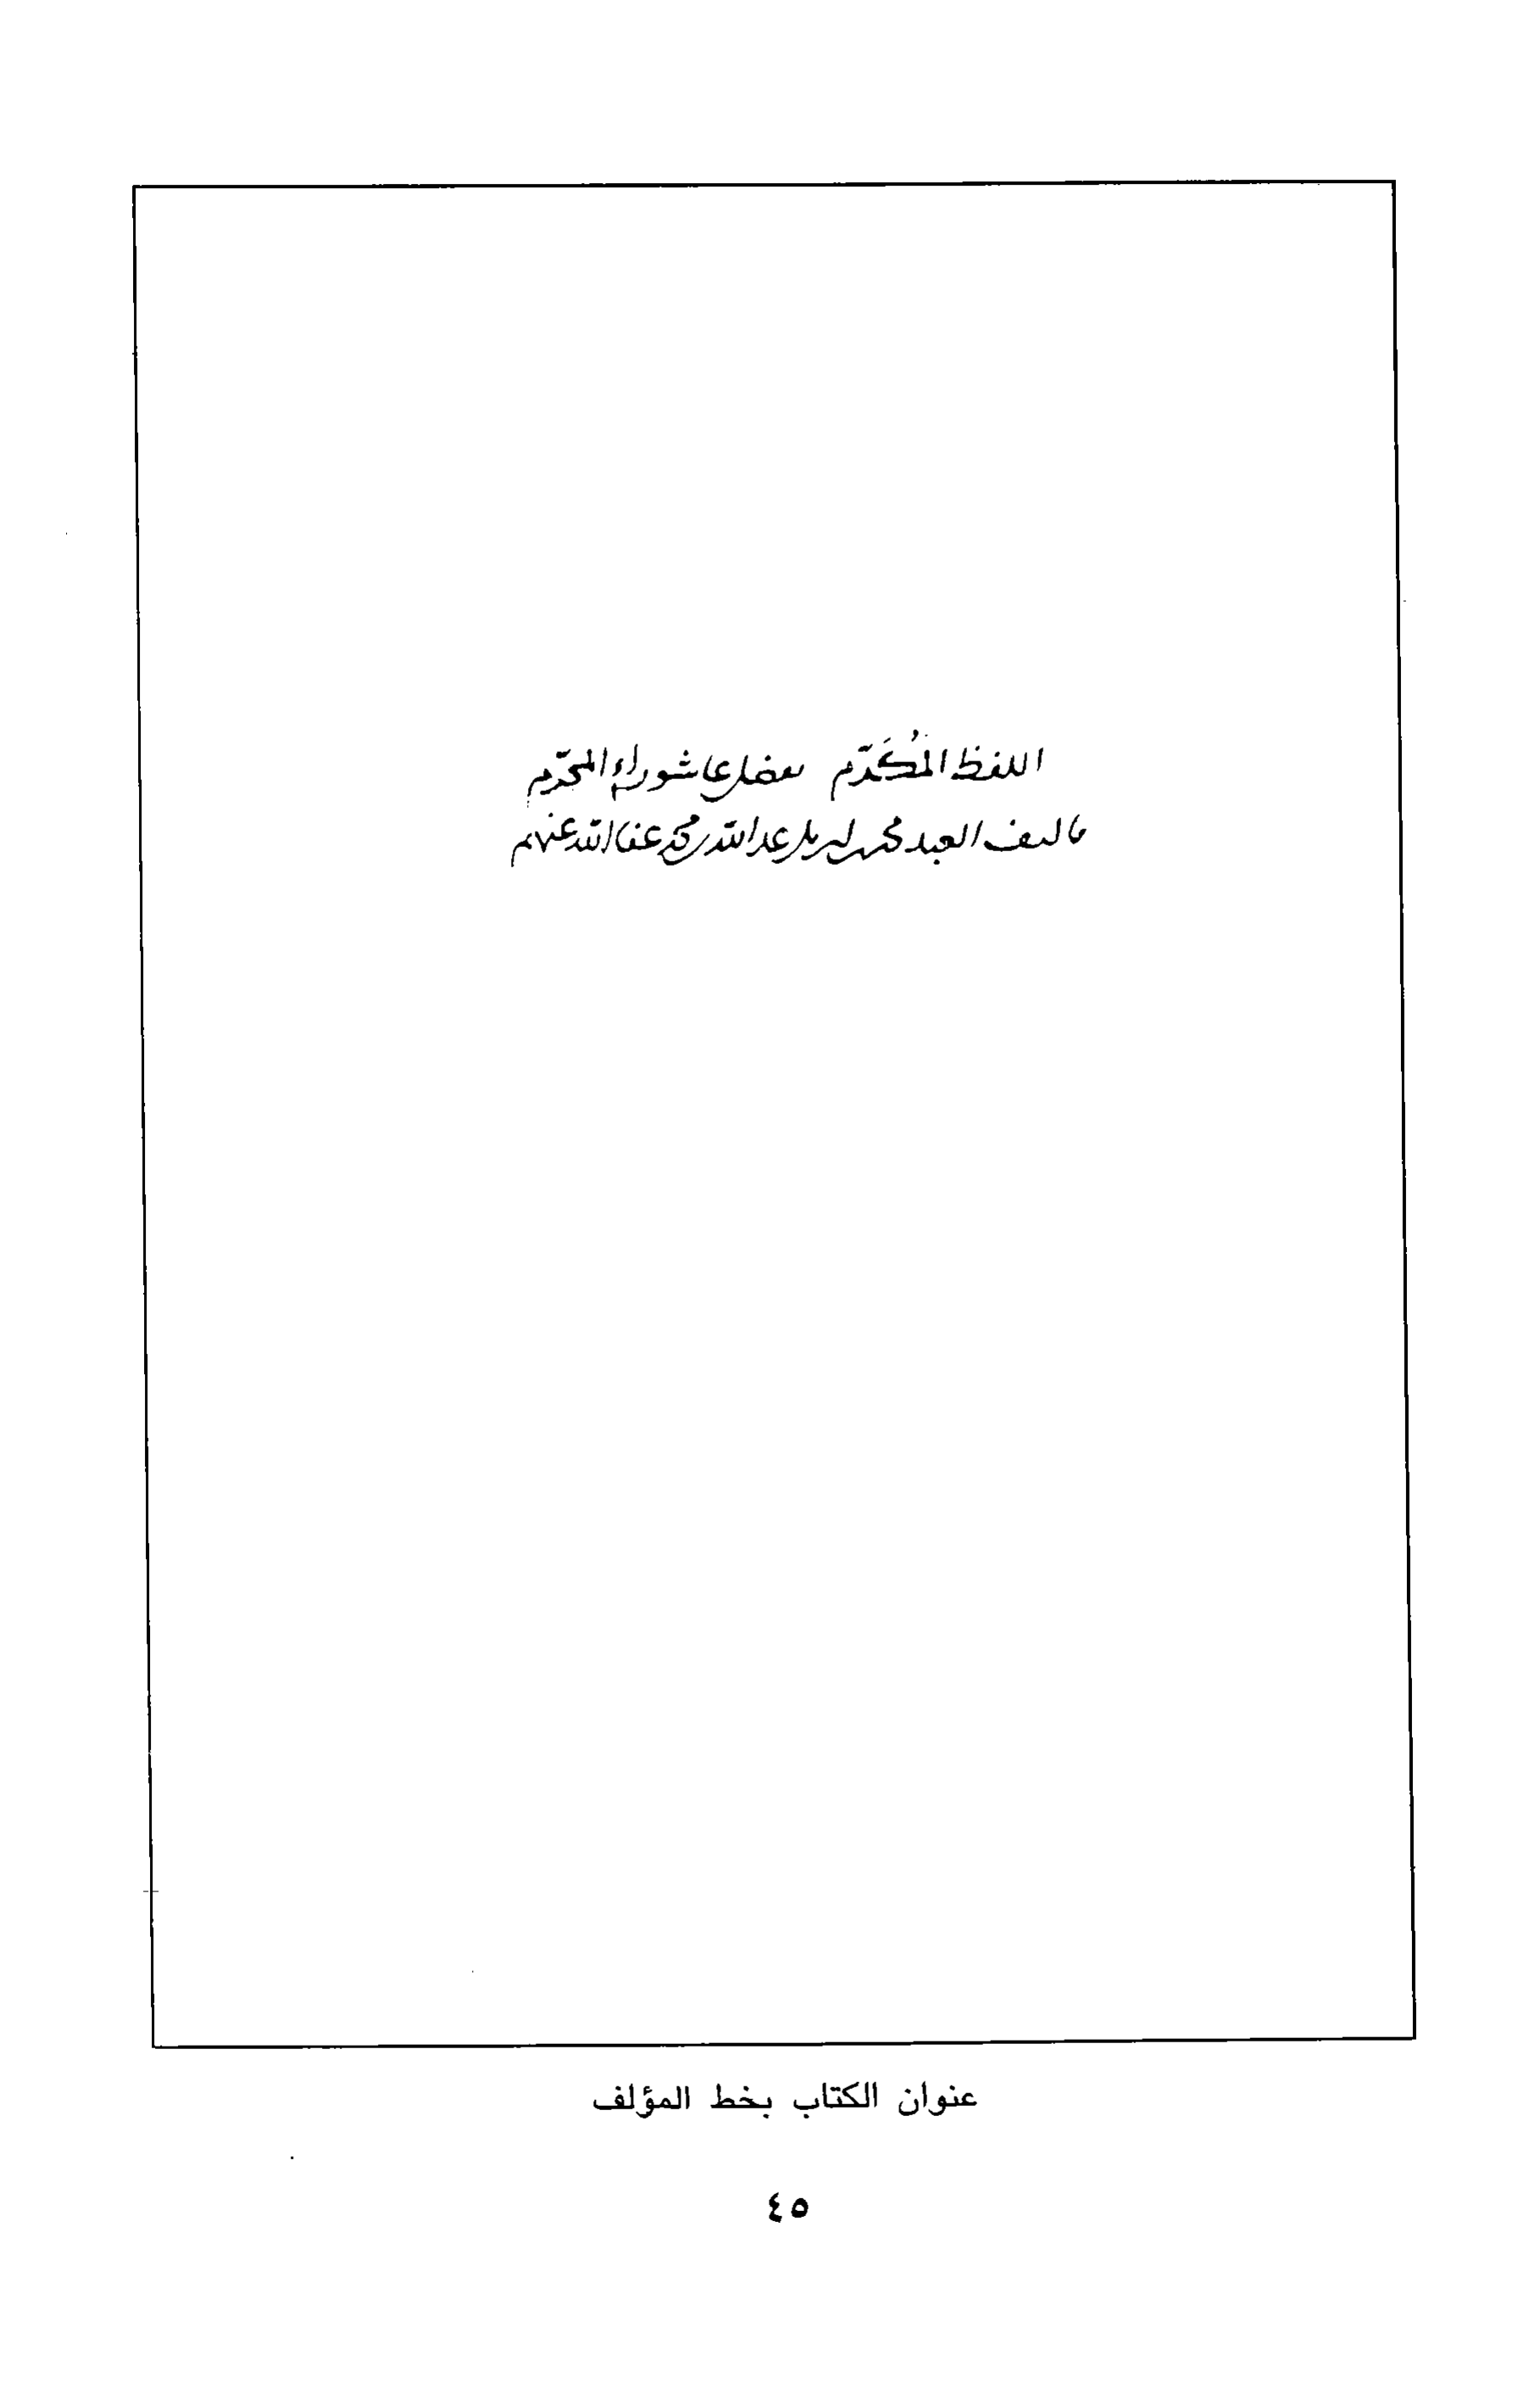 اللفظ المُكَرَّم بفضل عاشوراء المحرّم
تاليف العبد محمد بن ابي بكر عبد الله بن محمد عفا الله عنهم
عنوان الكتاب بخط المؤلف
٤٥